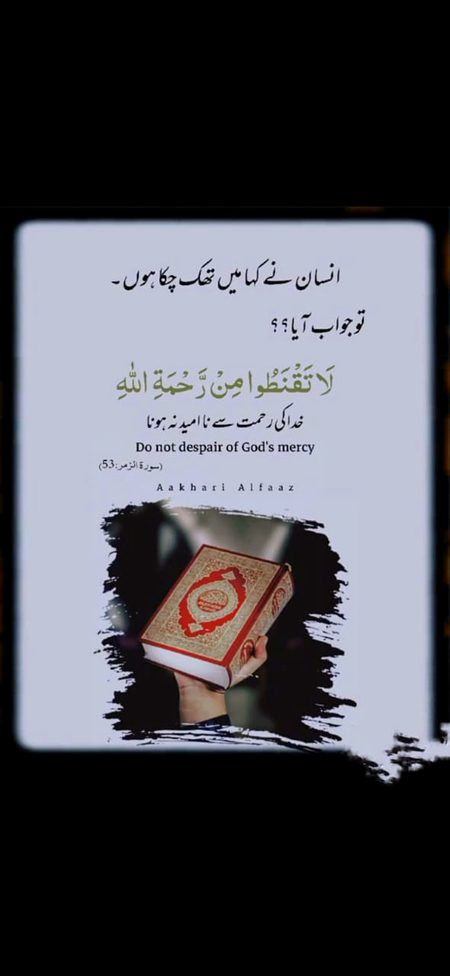 انسان نے کہا میں تھک چکا ہوں ۔
تو جواب آیا؟؟
لَا تَقْنَطُوا مِنْ رَّحْمَةِ اللّٰهِ
خدا کی رحمت سے نا امید نہ ہونا
Do not despair of God's mercy
(سورۃ الزمر:53)
Aakhari Alfaaz